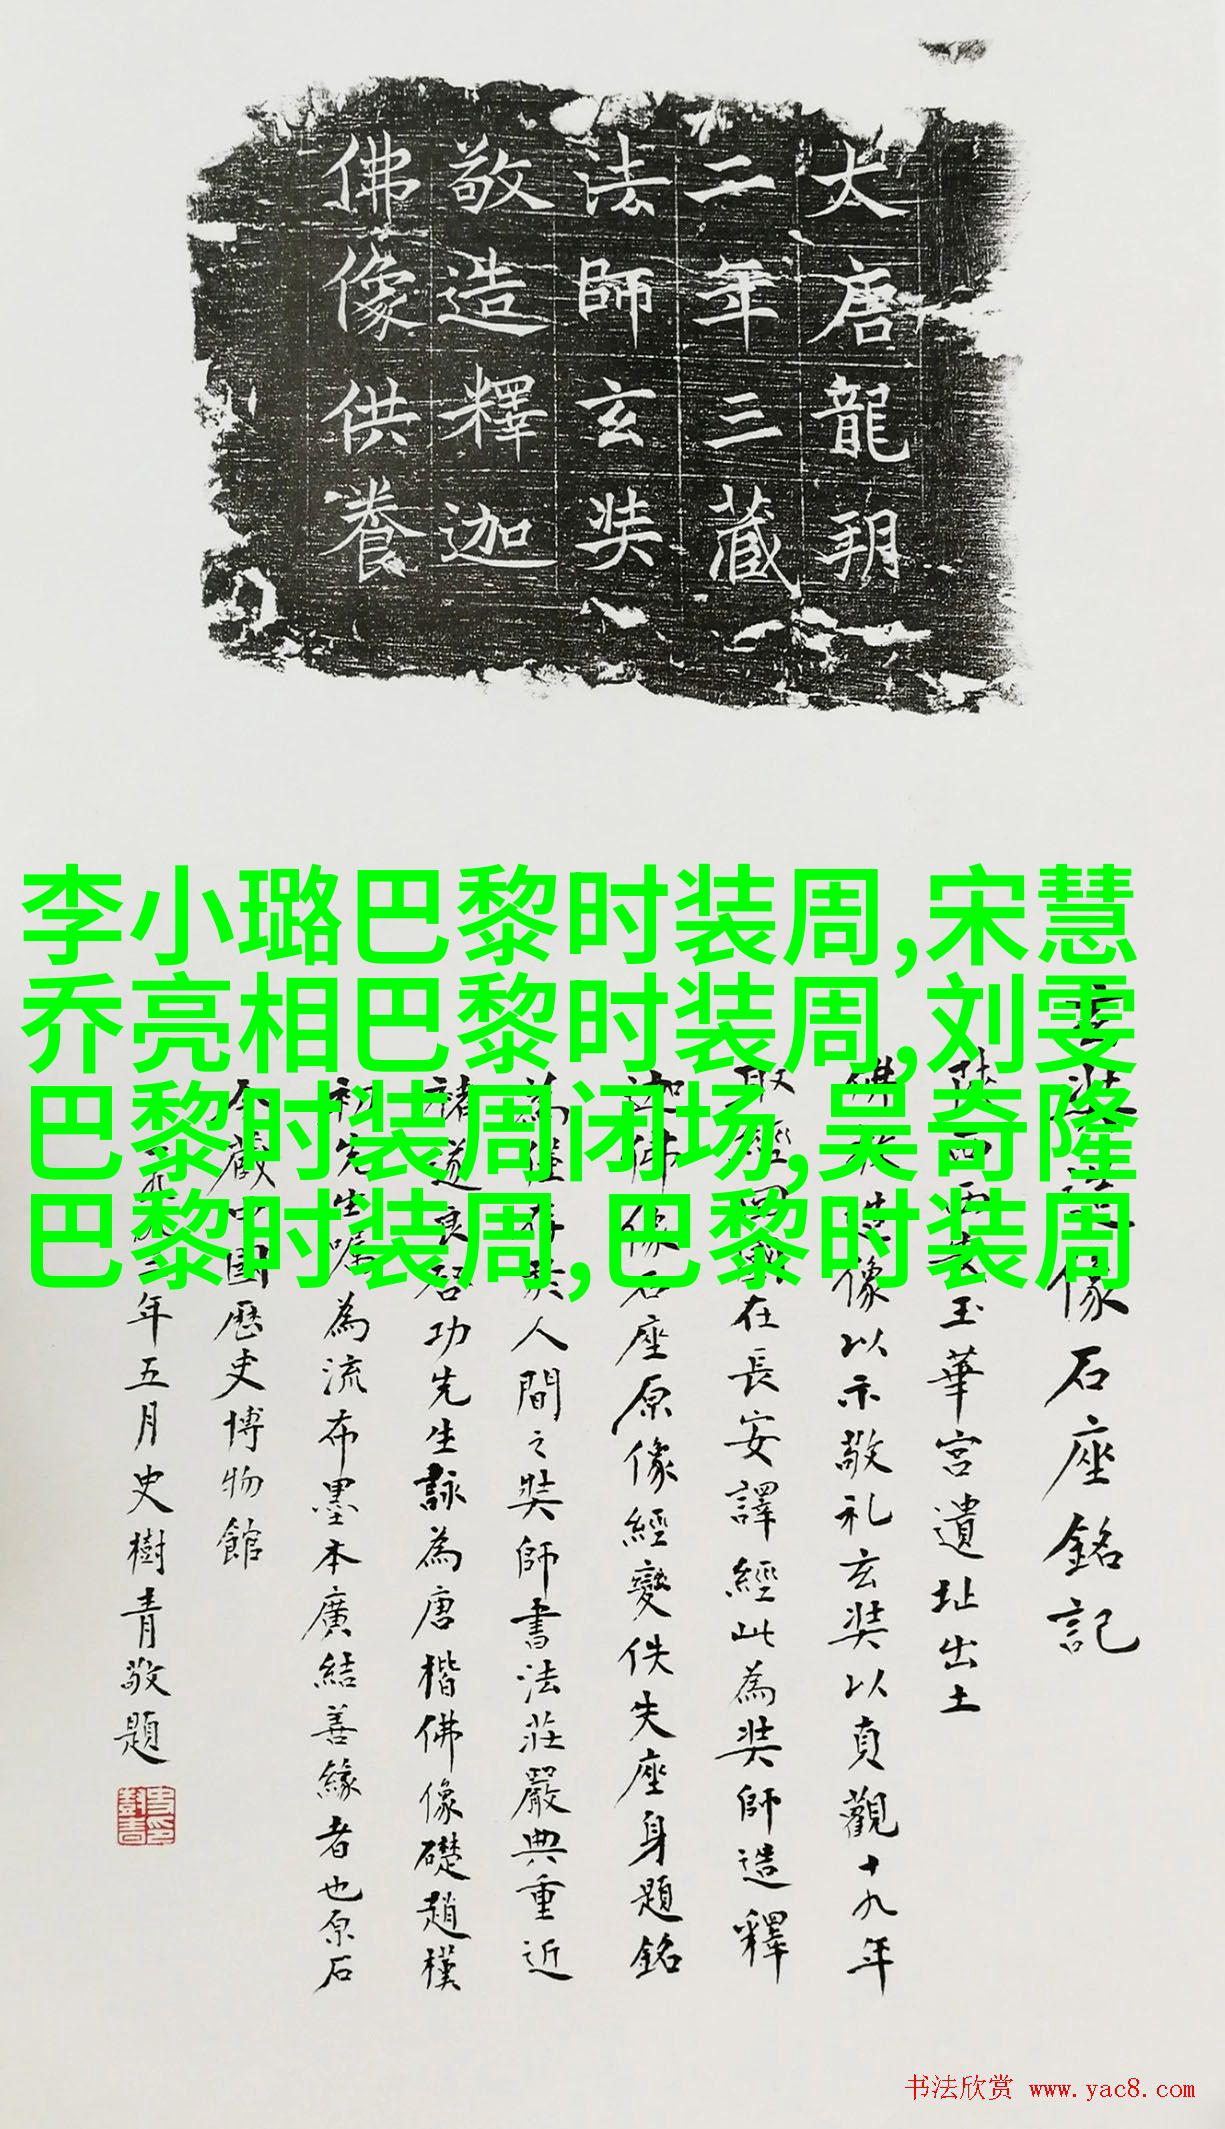 大唐龍朔
二年三藏
法師玄奘
敬造釋迦
佛像供養
李小璐巴黎时装周,宋慧
乔亮相巴黎时装周,刘雯
巴黎时装周闭场,吴奇隆
巴黎时装周,巴黎时装周
玄奘造像石座銘記
陝西西安玉華宮遺址出土
佛教造像以示敬礼玄奘以貞觀十九年
取經國在長安譯經此為奘師造釋
迦佛像石座原像經變佚失座身題銘
為僅存於人間之奘師書法莊嚴典重近
褚遂良啓功先生詠為唐楷佛像礎趙樸
初先生嘱為流布墨本廣結善緣者也原石
今藏中國歷史博物館
年五月史樹青敬題
书法欣赏 www.yac8.com